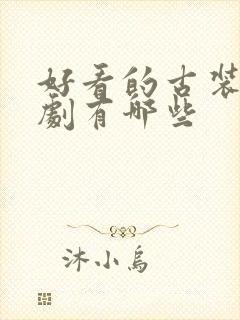 好看的古装
剧有哪些
沐小乌